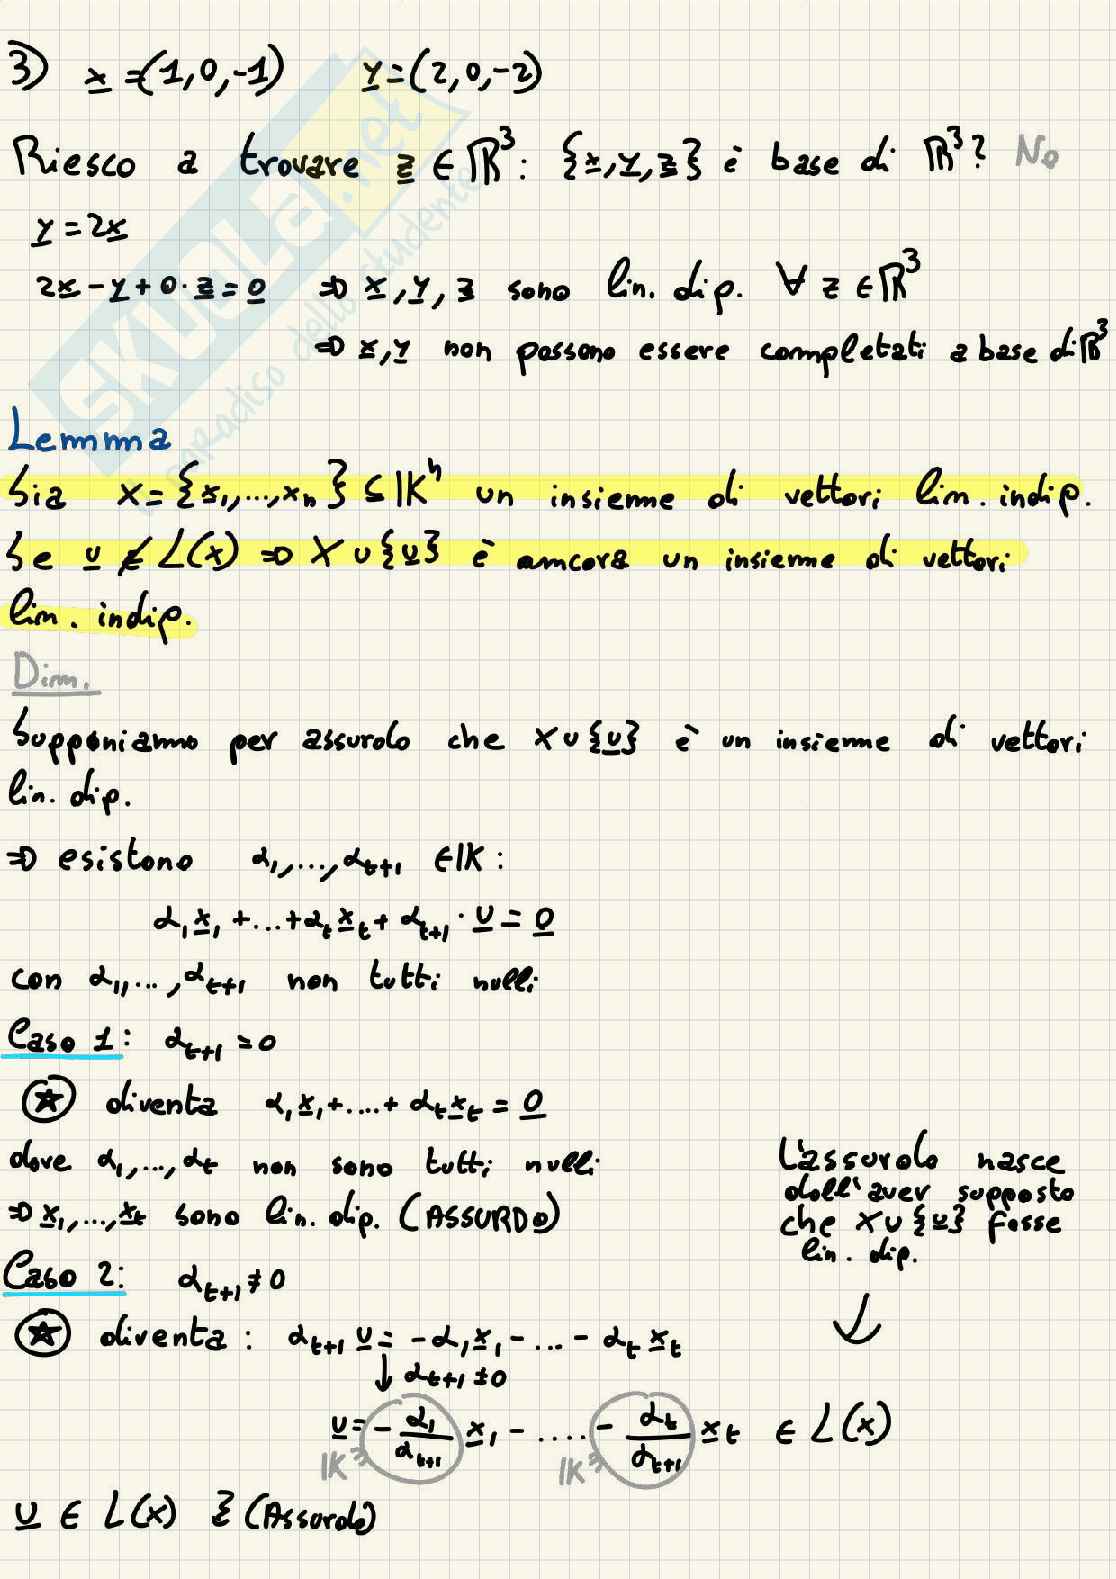 3) x=(1,0,-1) y=(2,0,-2)
Riesco a trovare z ∈ ℝ³: {x,y,z} è base di ℝ³? No
y=2x
2x-y+0·z=0 ⇒ x,y,z sono lin. dip. ∀ z ∈ ℝ³
⇒ x,y non possono essere completati a base di ℝ³
SKUOLA.net
paradiso dello studente
Lemma
Sia X={x₁,...,xₙ} ⊆ 𝕂ⁿ un insieme di vettori lin. indip.
Se u ∉ L(x) ⇒ X ∪ {u} è ancora un insieme di vettori
lin. indip.
Dim.
Supponiamo per assurdo che X ∪ {u} è un insieme di vettori
lin. dip.
⇒ esistono α₁,...,αₜ₊₁ ∈ 𝕂:
α₁x₁+...+αₜxₜ+αₜ₊₁·u=0
con α₁,...,αₜ₊₁ non tutti nulli
Caso 1: αₜ₊₁=0
☆ diventa α₁x₁+....+αₜxₜ=0
dove α₁,...,αₜ non sono tutti nulli
⇒ x₁,...,xₜ sono lin. dip. (ASSURDO)
L'assurdo nasce
dall'aver supposto
che X ∪ {u} fosse
lin. dip.
Caso 2: αₜ₊₁≠0
☆ diventa: αₜ₊₁ u = -α₁x₁-...-αₜxₜ
↓ αₜ₊₁≠0
u = -α₁/αₜ₊₁ x₁ - .... - αₜ/αₜ₊₁ xₜ ∈ L(x)
𝕂 ∋ 𝕂 ∋
u ∈ L(x) (Assurdo)